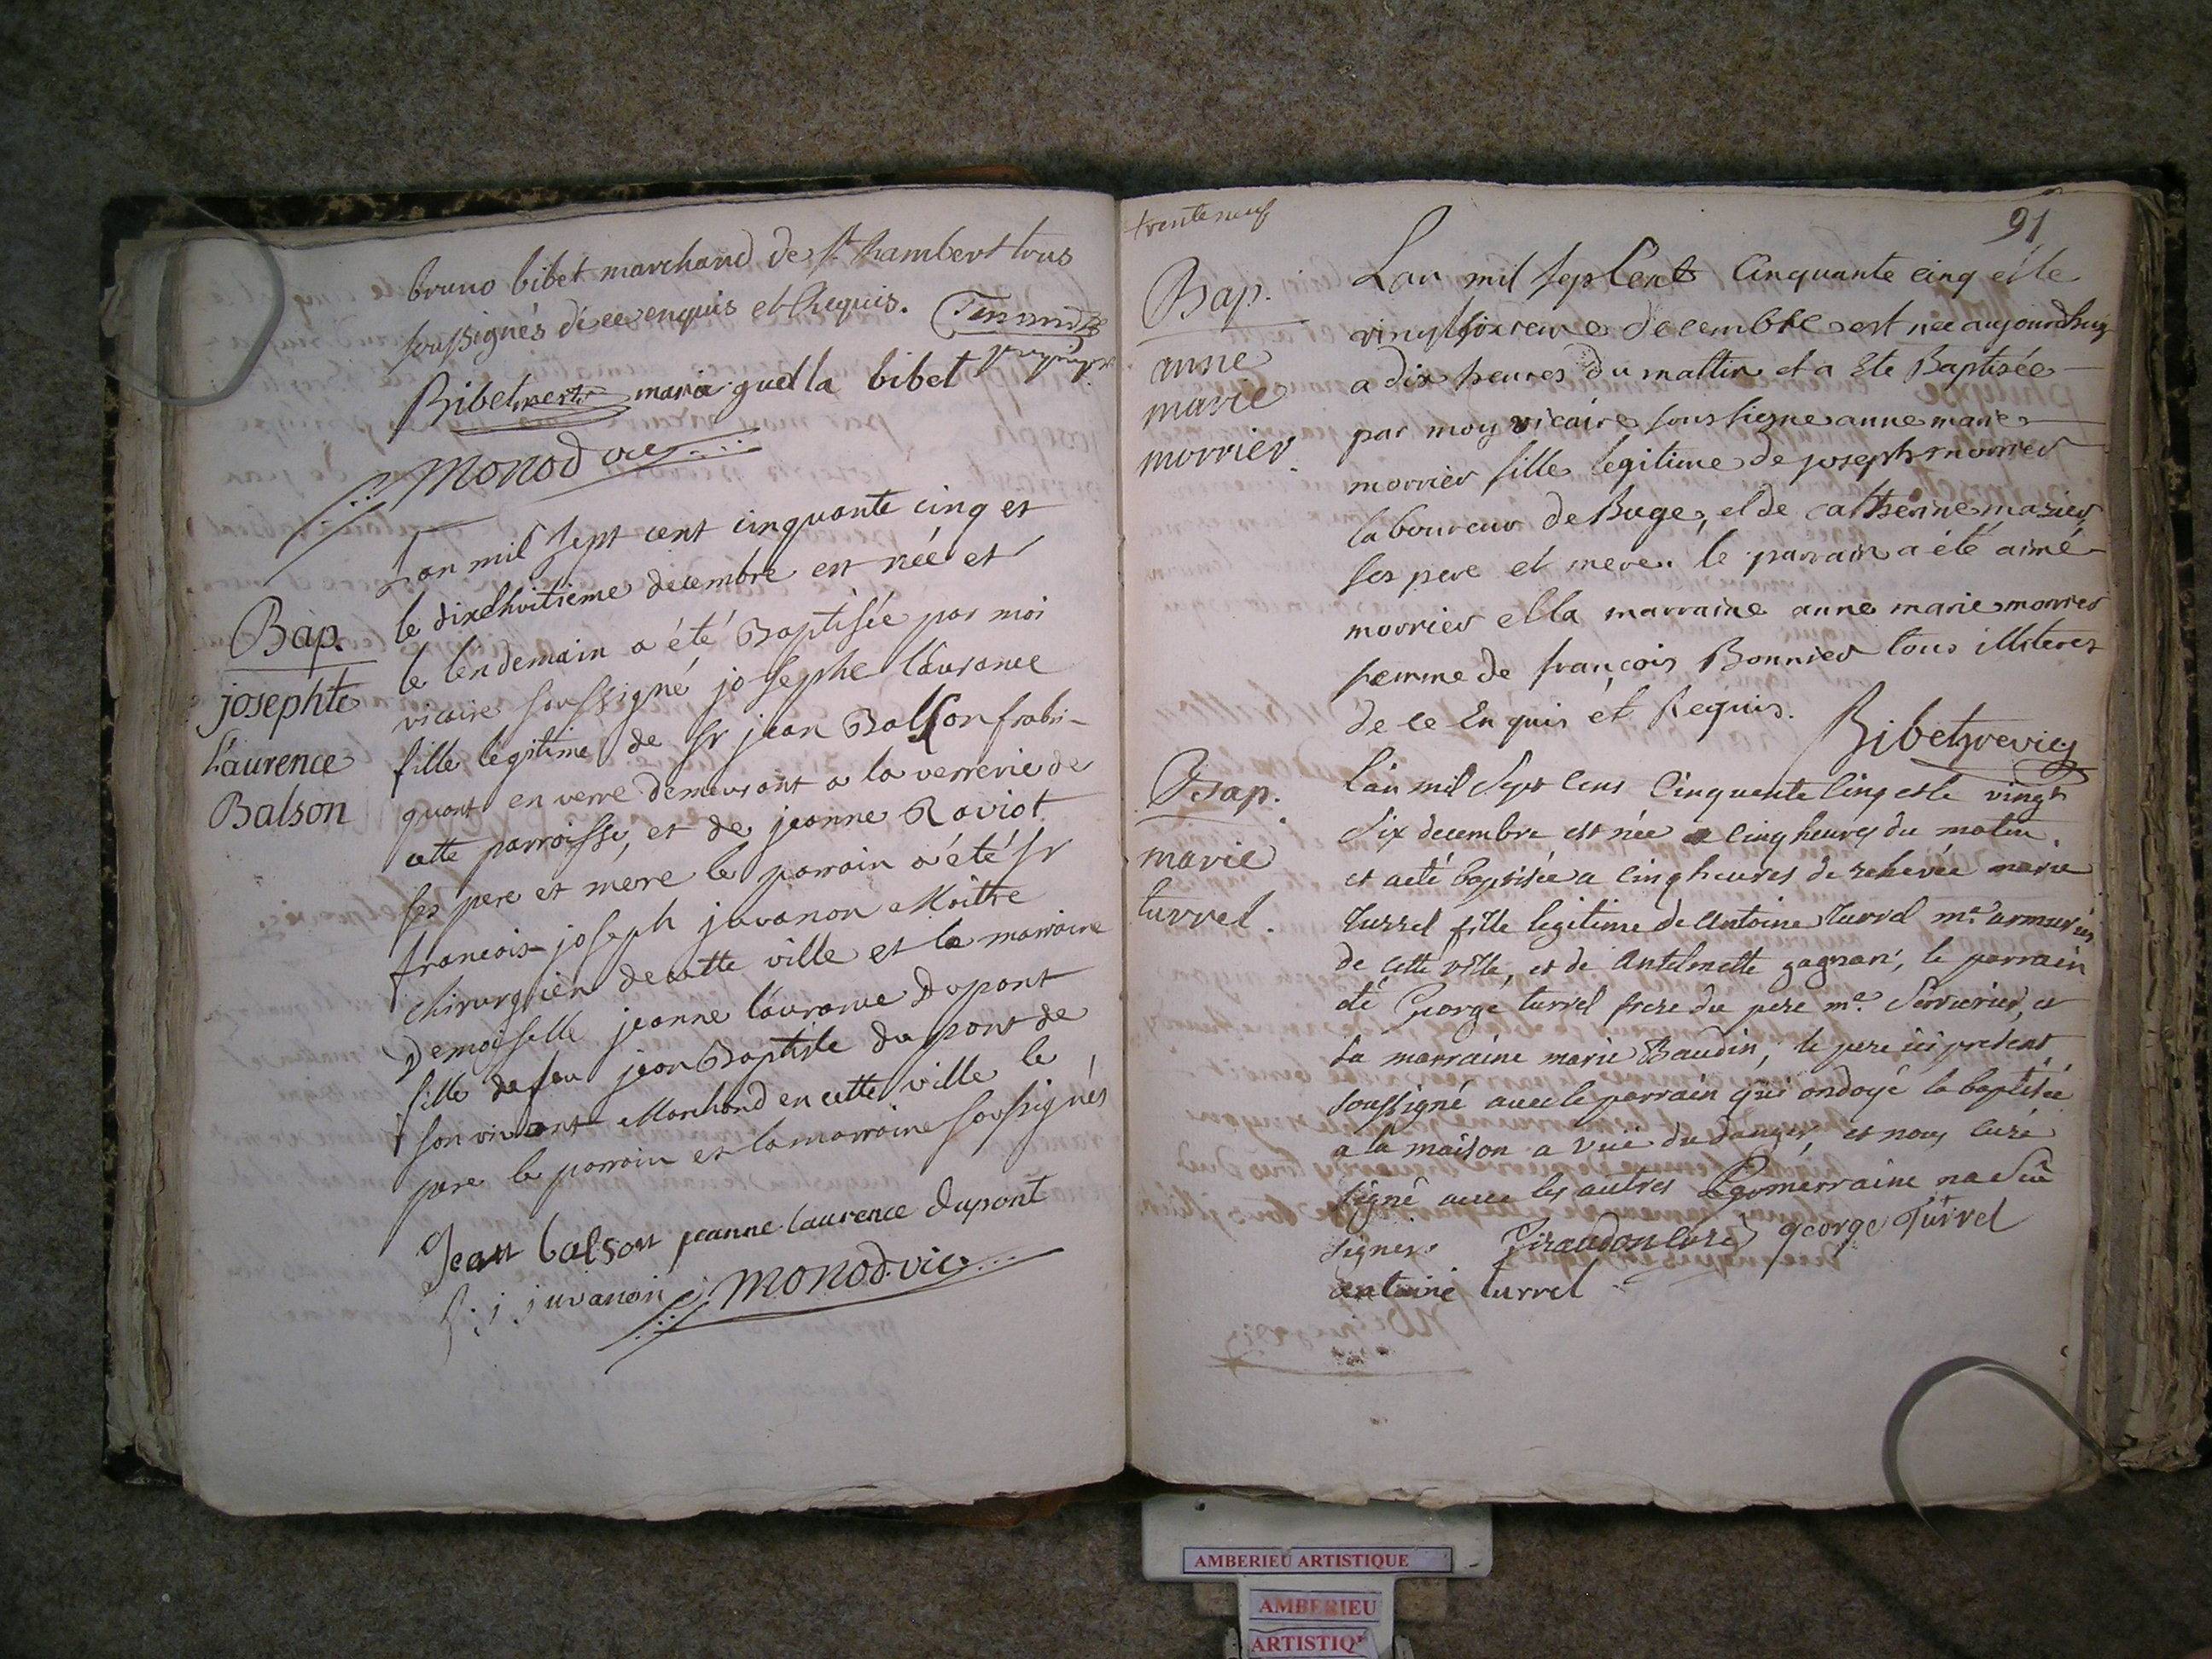 bruno bibet marchand de St Rambert tous
soussignés de ce enquis et Requis.
Bibet maria guella bibet
Monod vic
Bap.
josephte
Laurence
Balson
Lan mil sept cent cinquante cinq et
le dixehuitieme decembre est née et
le lendemain a été Baptisée par moi
vicaire soussigné josephe laurance
fille legitime de Sr jean Balson fabri-
quant en verre demeurant a la verrerie de
cette parroisse, et de jeanne Raviot
ses pere et mere le parrain a été Sr
francois joseph juvanon Maitre
chirurgien de cette ville et la marraine
Demoiselle jeanne laurance Dupont
fille de feu jean Baptiste du pont de
son vivant Marchand en cette ville le
pere le parrain et la marraine soussignés
Jean balson jeanne laurence dupont
f. j. juvanon Monod. vic.
trente neuf
91
Bap.
anne
marie
morrier.
Lan mil sept Cent Cinquante cinq et le
vingt sixieme decembre est née aujourdhuy
a dix heures du mattin et a Ete Baptisée
par moy vicaire sous signe anne marie
morrier fille legitime de joseph morrier
laboureur de Buge, et de Catherine mazier
ses pere et mere. le parrain a été aimé
morrier et la marraine anne marie morrier
femme de françois Bonnier tous illiteres
de ce En quis et Requis.
Bibet vic
Bap.
marie
turrel.
L'an mil Sept Cens Cinquante Cinq et le vingt
Six decembre est née a Cinq heures du matin
et a eté baptisée a Cinq heures de relevée marie
turrel fille legitime de Antoine Turrel me. armurier
de cette ville, et de Antelmette gagnan, le parrain
été George turrel frere du pere me. Serrurier, et
La marraine marie Baudin, le pere ici present
soussigné avec le parrain qui ondoyé la baptisée
a la maison a Vuë du danger, et nous curé
signé avec les autres la marraine na Sû
signer. Giraudon Curé george Turrel
antoine turrel
AMBERIEU ARTISTIQUE
AMBERIEU
ARTISTIQ